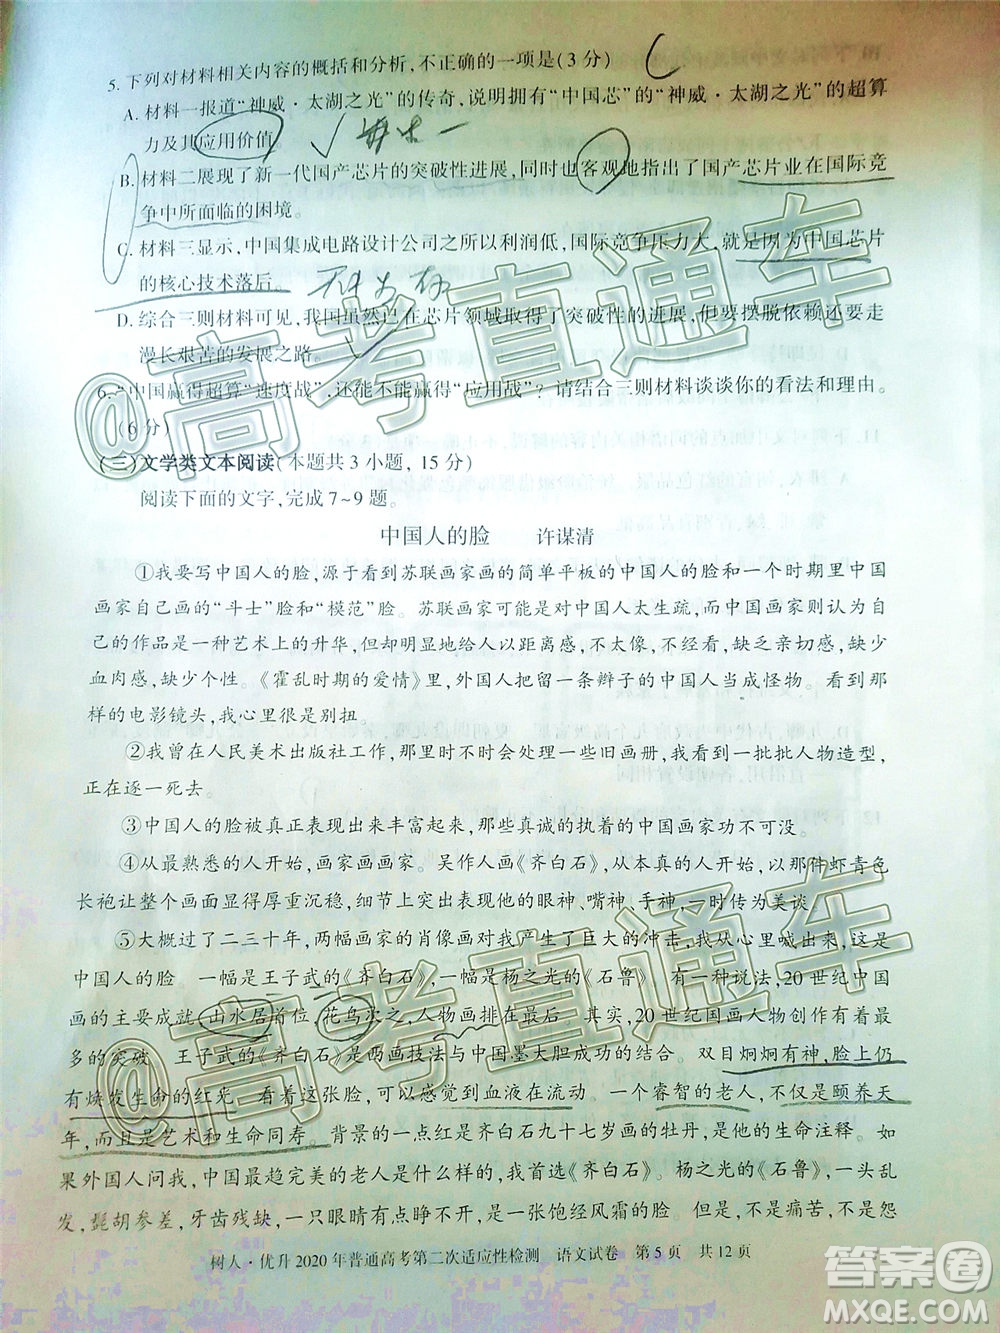 5. 下列对材料相关内容的概括和分析,不正确的一项是(3分)
A. 材料一报道“神威·太湖之光”的传奇,说明拥有“中国芯”的“神威·太湖之光”的超算
力及其应用价值。
B. 材料二展现了新一代国产芯片的突破性进展,同时也客观地指出了国产芯片业在国际竞
争中所面临的困境。
C. 材料三显示,中国集成电路设计公司之所以利润低,国际竞争压力大,就是因为中国芯片
的核心技术落后。
D. 综合三则材料可见,我国虽然已在芯片领域取得了突破性的进展,但要摆脱依赖还要走
漫长艰苦的发展之路。
6. “中国赢得超算“速度战”,还能不能赢得“应用战”? 请结合三则材料谈谈你的看法和理由。
(6分)
(三)文学类文本阅读(本题共3小题, 15分)
阅读下面的文字,完成7~9题。
中国人的脸 许谋清
①我要写中国人的脸,源于看到苏联画家画的简单平板的中国人的脸和一个时期里中国
画家自己画的“斗士”脸和“模范”脸。苏联画家可能是对中国人太生疏,而中国画家则认为自
己的作品是一种艺术上的升华,但却明显地给人以距离感,不太像。不经看,缺乏亲切感,缺少
血肉感,缺少个性。《霍乱时期的爱情》里,外国人把留一条辫子的中国人当成怪物。看到那
样的电影镜头,我心里很是别扭。
②我曾在人民美术出版社工作,那里时不时会处理一些旧画册,我看到一批批人物造型,
正在逐一死去。
③中国人的脸被真正表现出来丰富起来,那些真诚的执着的中国画家功不可没。
④从最熟悉的人开始,画家画画家。吴作人画《齐白石》,从本真的人开始,以那件虾青色
长袍让整个画面显得厚重沉稳,细节上突出表现他的眼神、嘴神、手神,一时传为美谈。
⑤大概过了二三十年,两幅画家的肖像画对我产生了巨大的冲击,我从心里喊出来,这是
中国人的脸 一幅是王子武的《齐白石》,一幅是杨之光的《石鲁》 有一种说法,20世纪中国
画的主要成就,山水居首位 花鸟次之,人物画排在最后。其实,20世纪国画人物创作有着最
多的突破 王子武的《齐白石》是两画技法与中国墨大胆成功的结合。双目炯炯有神,脸上仍
有焕发生命的红光 看着这张脸,可以感觉到血液在流动。一个睿智的老人,不仅是颐养天
年,而且是艺术和生命同寿。背景的一点红是齐白石九十七岁画的牡丹,是他的生命注释。如
果外国人问我,中国最趋完美的老人是什么样的,我首选《齐白石》。杨之光的《石鲁》,乱
发,髭胡参差,牙齿残缺,一只眼睛有点睁不开,是一张饱经风霜的脸。但不仅是沧桑!痛苦!
树人·优升2020年普通高考第二次适应性检测 语文试卷 第5页 共12页
@高考直通车
@高考直通车
答案圈
MXQE.COM